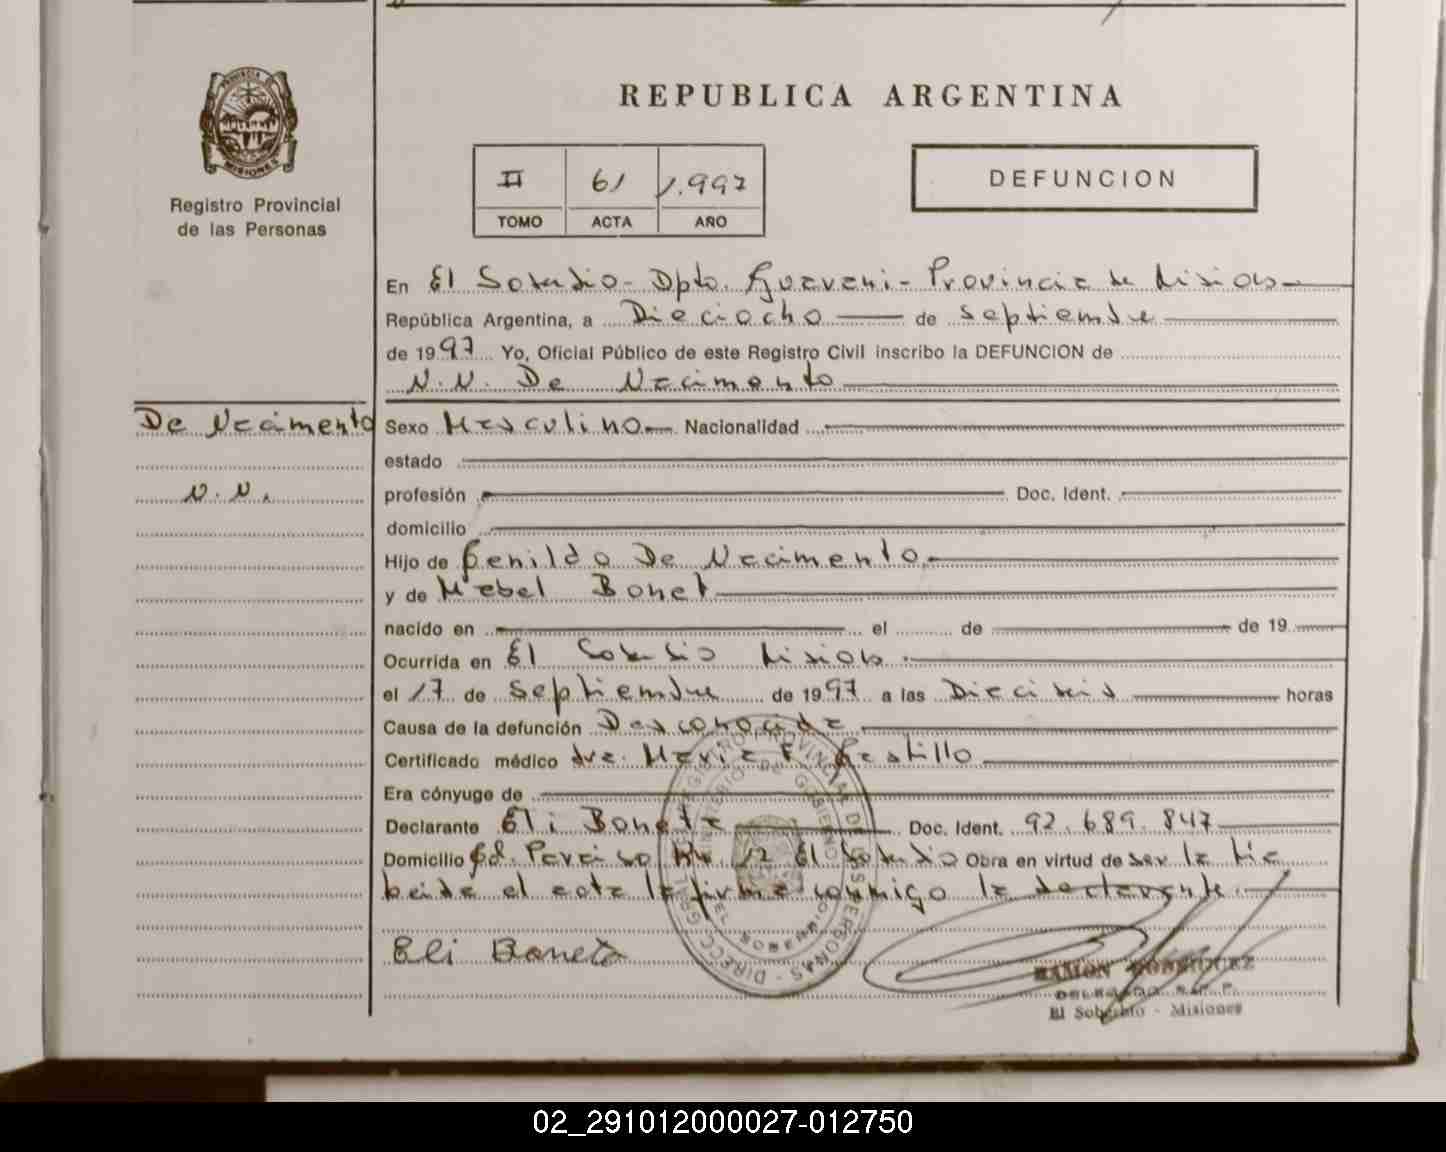 REPUBLICA ARGENTINA
PROVINCIA DE
MISIONES
Registro Provincial
de las Personas
II 61 1.997
TOMO ACTA AÑO
DEFUNCION
En El Soberbio - Dpto. Guarani - Provincia de Misiones
República Argentina, a Dieciocho de Septiembre
de 1997 Yo, Oficial Público de este Registro Civil inscribo la DEFUNCION de
N.N. De Nacimento
De Nacimento
N.N.
Sexo Masculino Nacionalidad
estado
profesión Doc. Ident.
domicilio
Hijo de Genildo De Nacimento
y de Mabel Bonet
nacido en el de de 19
Ocurrida en El Soberbio Misiones
el 17 de Septiembre de 1997 a las Dieciseis horas
Causa de la defunción Desconocida
Certificado médico Dra. Maria F. Castillo
Era cónyuge de
Declarante Eli Boneta Doc. Ident. 92.689.847
Domicilio Col. Paraiso Km 12 El Soberbio Obra en virtud de ser la tia
leida el acta la firma conmigo la declarante.
Eli Boneta
RAMON RODRIGUEZ
DELEGADO R.P.P.
El Soberbio - Misiones
02_291012000027-012750